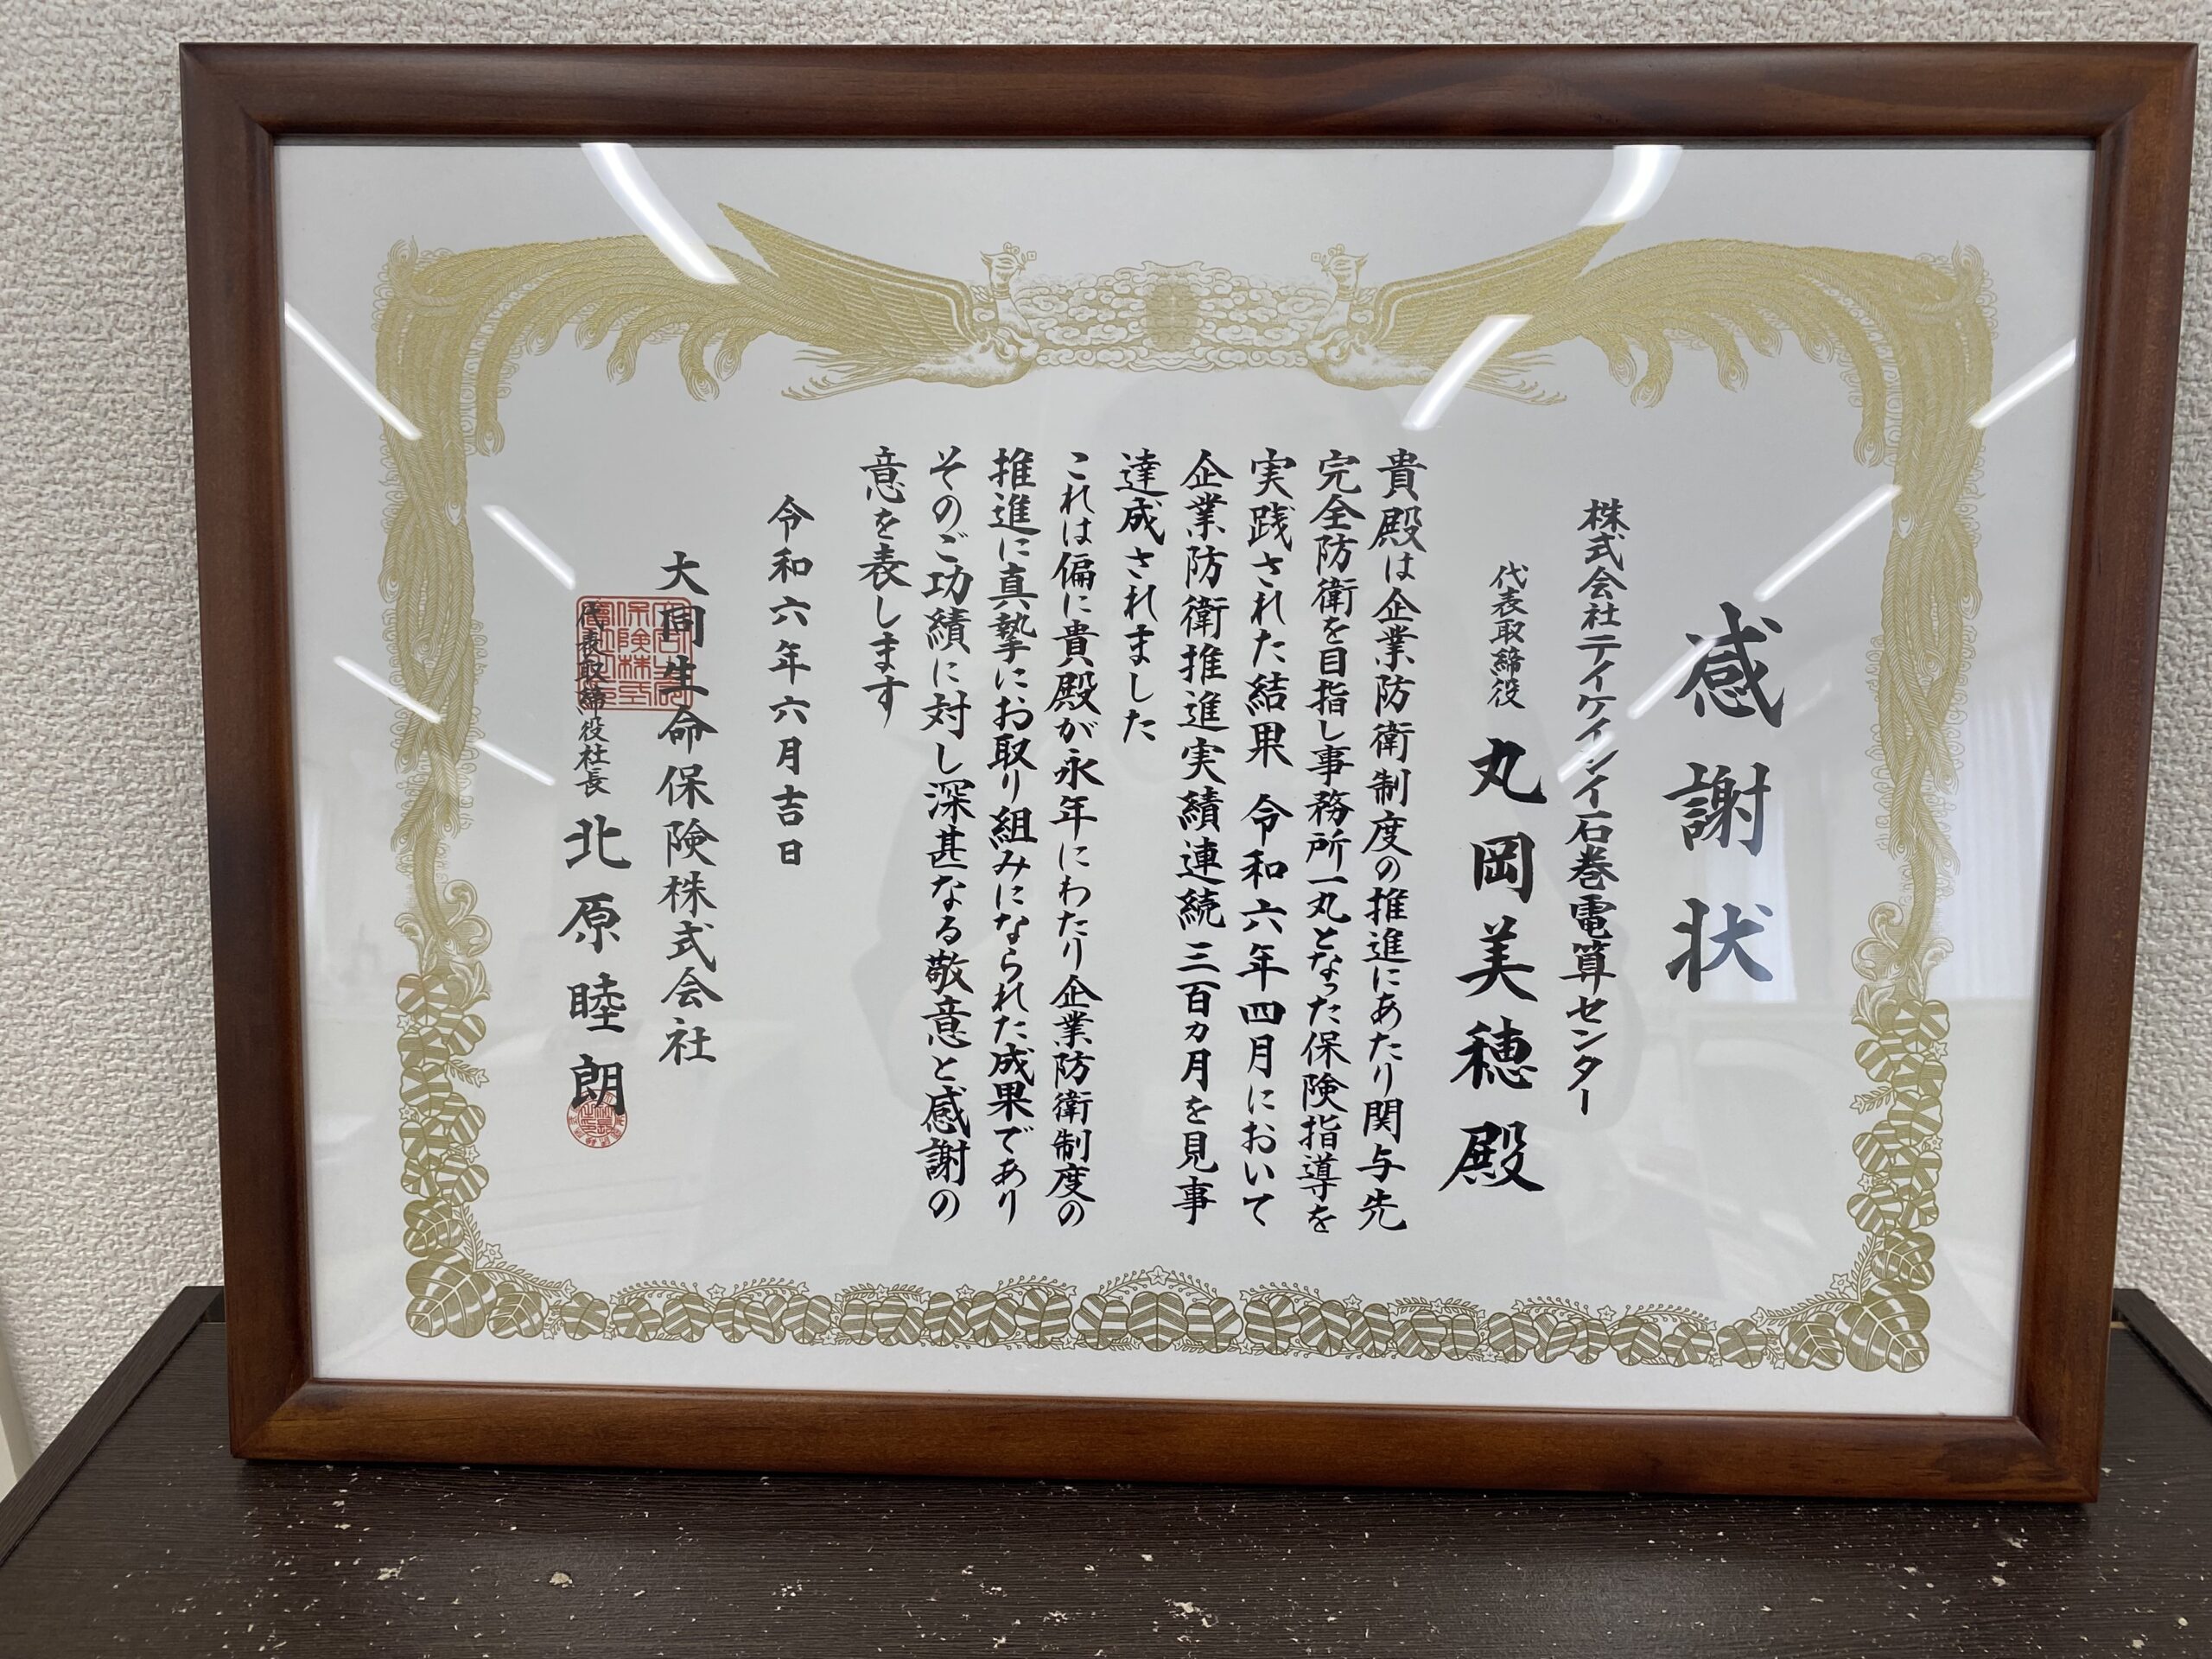 感謝状
株式会社テイケイシイ石巻電算センター
代表取締役 丸岡美穂殿
貴殿は企業防衛制度の推進にあたり関与先
完全防衛を目指し事務所一丸となった保険指導を
実践された結果 令和六年四月において
企業防衛推進実績連続三百カ月を見事
達成されました
これは偏に貴殿が永年にわたり企業防衛制度の
推進に真摯にお取り組みになられた成果であり
そのご功績に対し深甚なる敬意と感謝の
意を表します
令和六年六月吉日
大同生命保険株式会社
代表取締役社長 北原睦朗